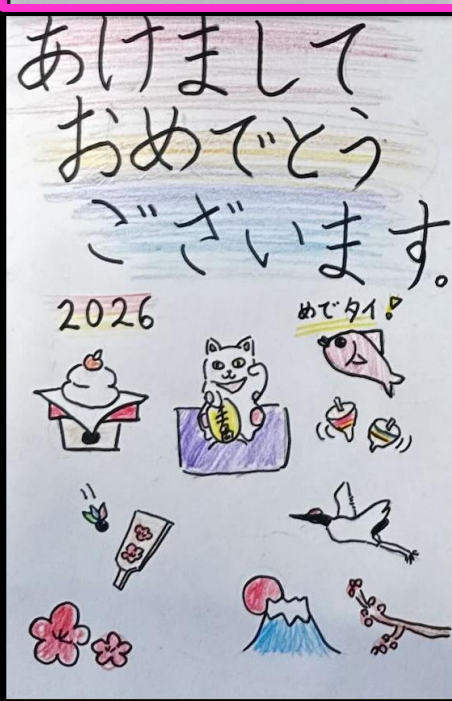 あけまして
おめでとう
ございます。
2026
めでタイ!